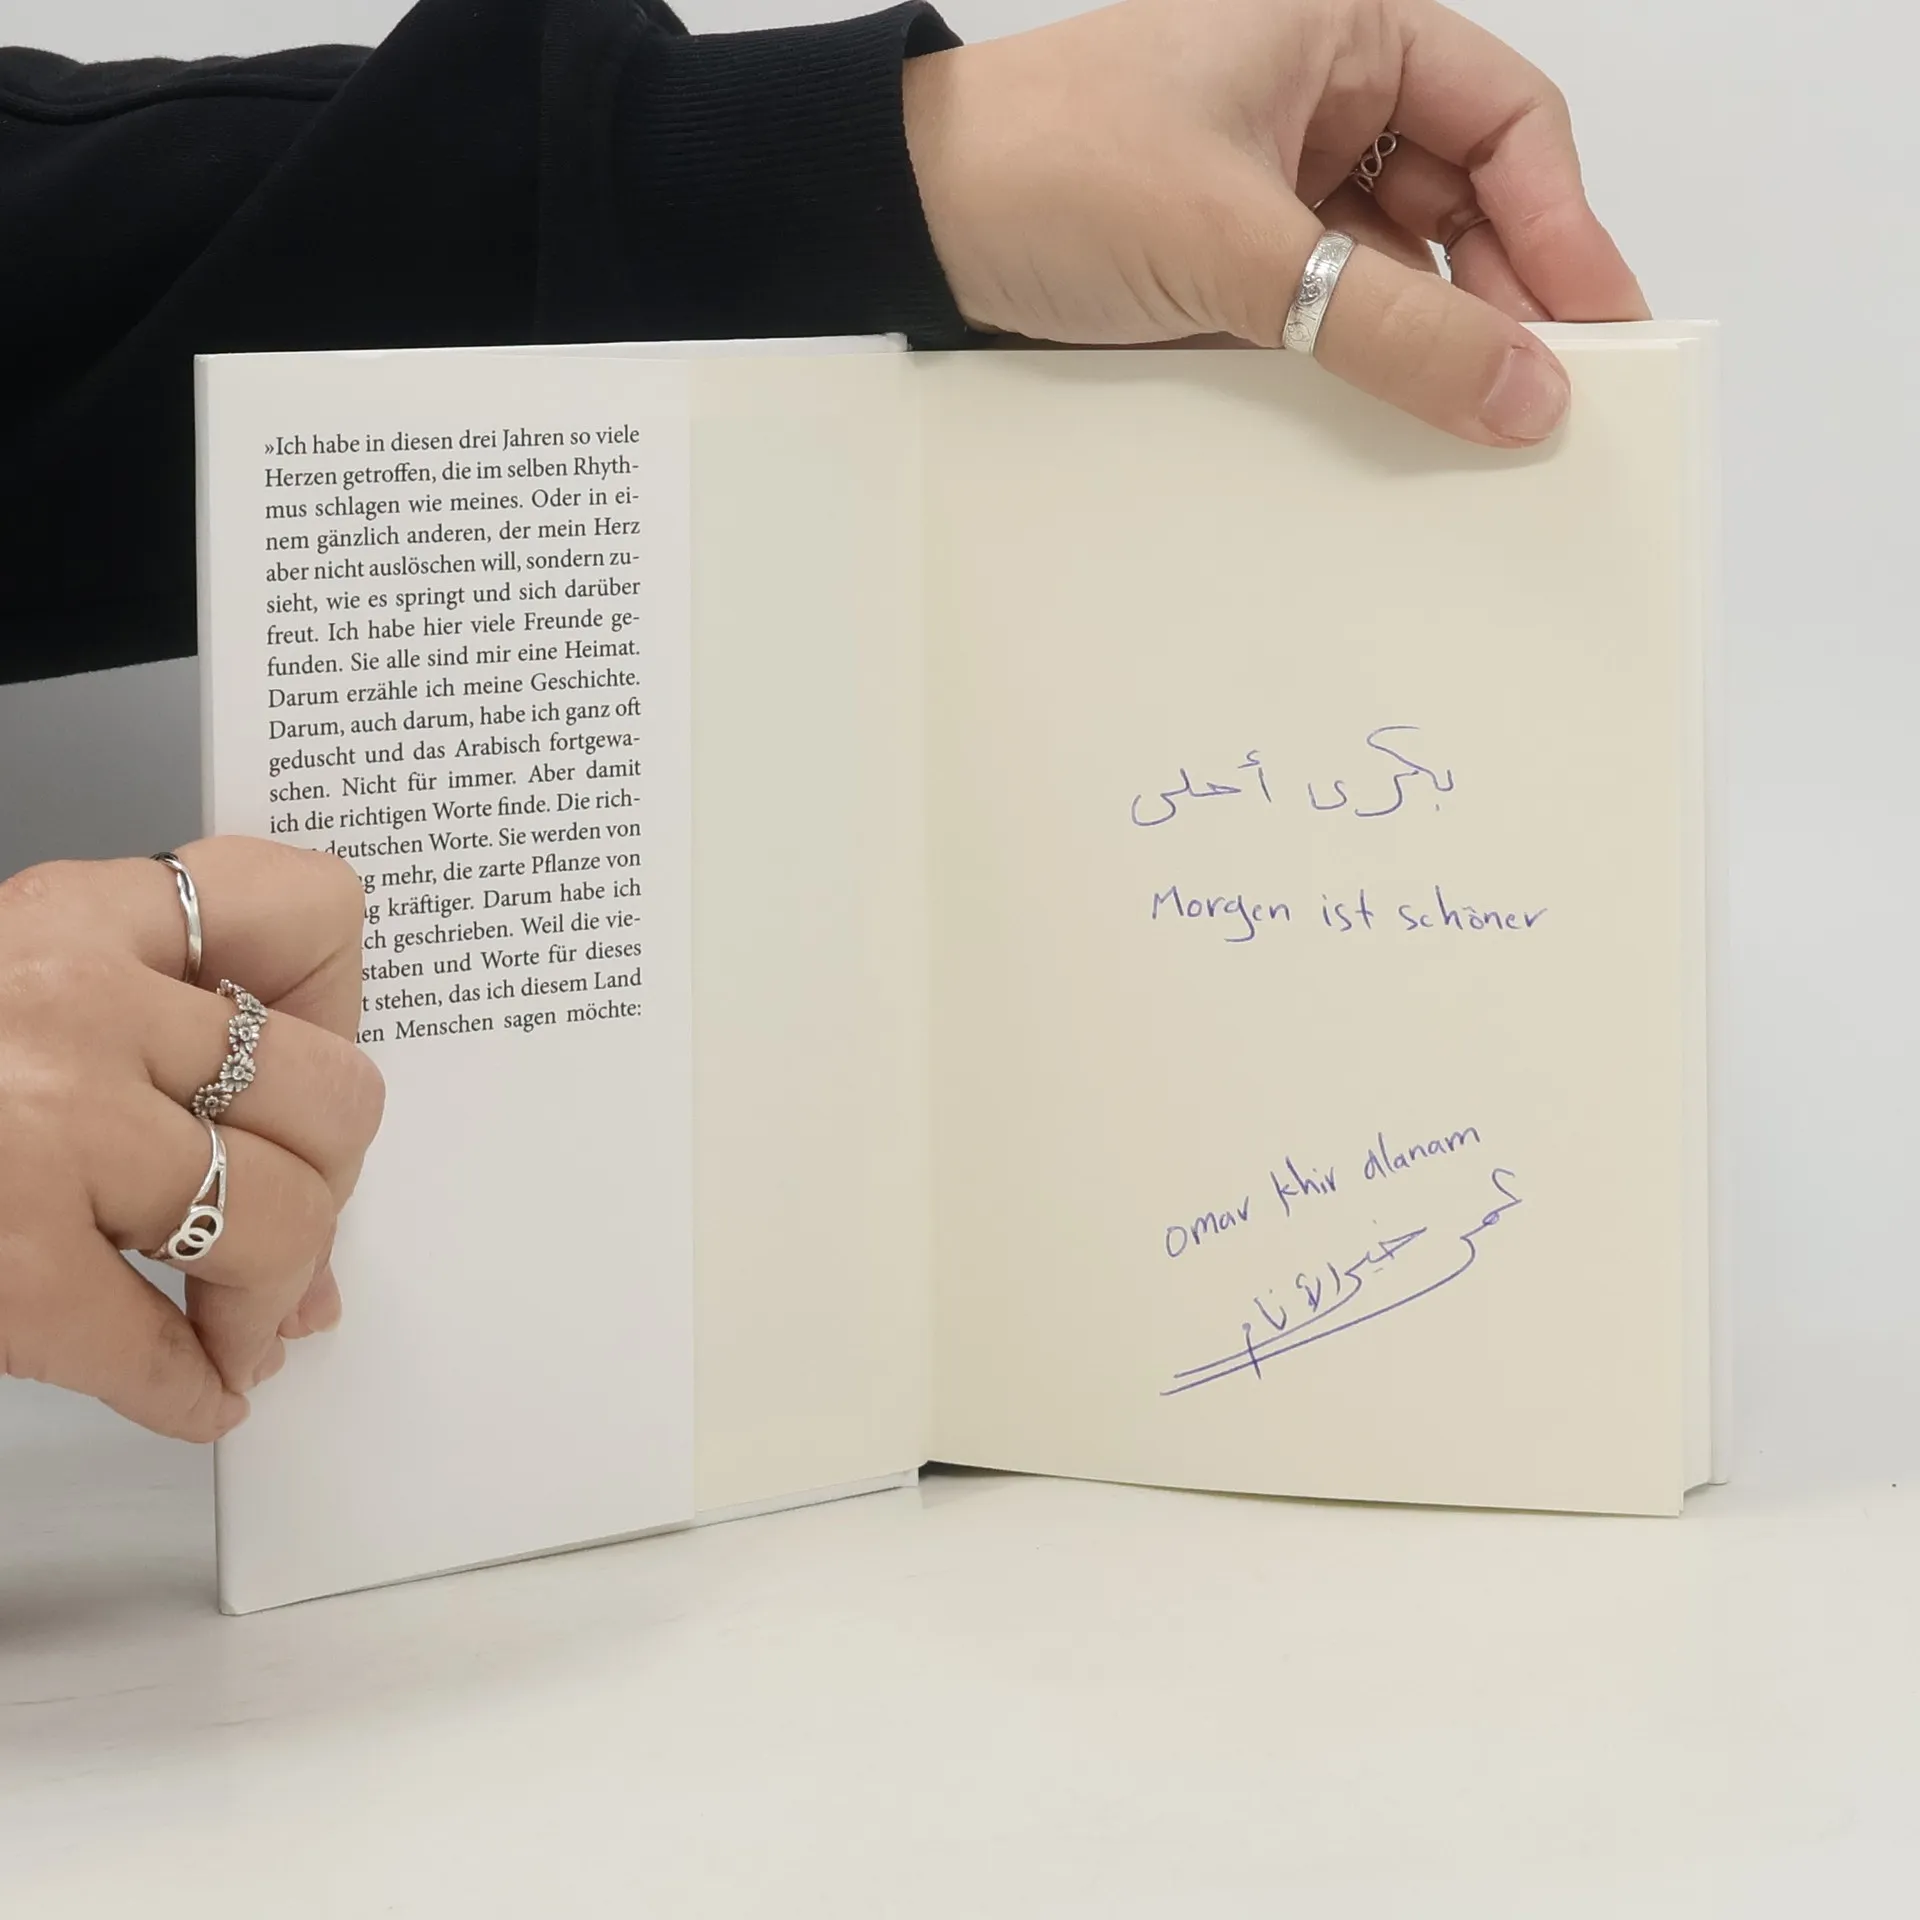 »Ich habe in diesen drei Jahren so viele
Herzen getroffen, die im selben Rhyth-
mus schlagen wie meines. Oder in ei-
nem gänzlich anderen, der mein Herz
aber nicht auslöschen will, sondern zu-
sieht, wie es springt und sich darüber
freut. Ich habe hier viele Freunde ge-
funden. Sie alle sind mir eine Heimat.
Darum erzähle ich meine Geschichte.
Darum, auch darum, habe ich ganz oft
geduscht und das Arabisch fortgewa-
schen. Nicht für immer. Aber damit
ich die richtigen Worte finde. Die rich-
deutschen Worte. Sie werden von
mehr, die zarte Pflanze von
kräftiger. Darum habe ich
geschrieben. Weil die vie-
staben und Worte für dieses
stehen, das ich diesem Land
Menschen sagen möchte:
بكرى أحلى
Morgen ist schöner
omar khir alanam
عمر خير الأنام